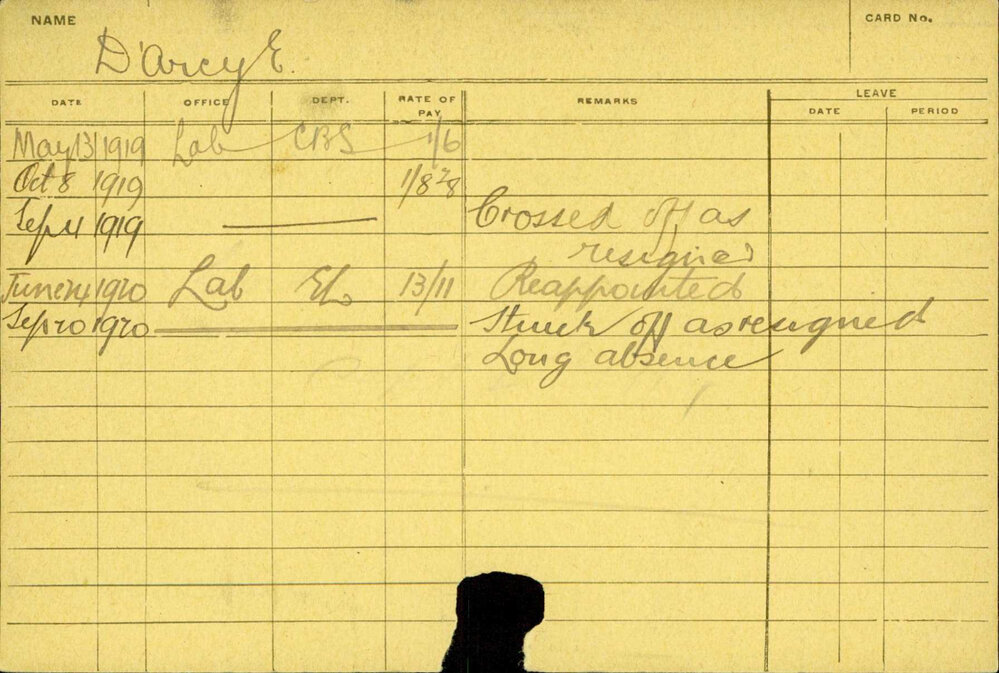 NAME CARD No.
D'Arcy E.
DATE OFFICE DEPT. RATE OF PAY REMARKS LEAVE
DATE PERIOD
May 13 1919 Lab CBS 1/6
Oct 8 1919
Sep 4 1919 Crossed off as
resigned
June 14 1920 Lab 13/11 Reappointed
Sep 20 1920 Struck off as resigned
Long absence